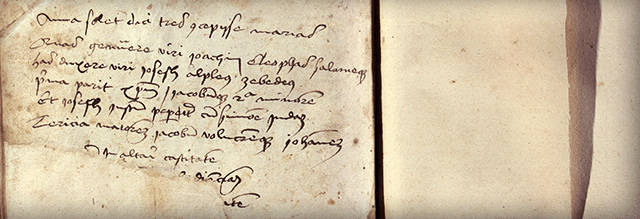 Anna solet dici tres 9cepisse marias
Quas genuere viri joachim Cleophas salomeq
has duxere viri joseph alpheus zebedeus
p'ma parit xpm jacobumq 2a minorem
Et joseph justu peperit cu simone judam
Tercia maiorem jacobu volucremq johannem
In castitate